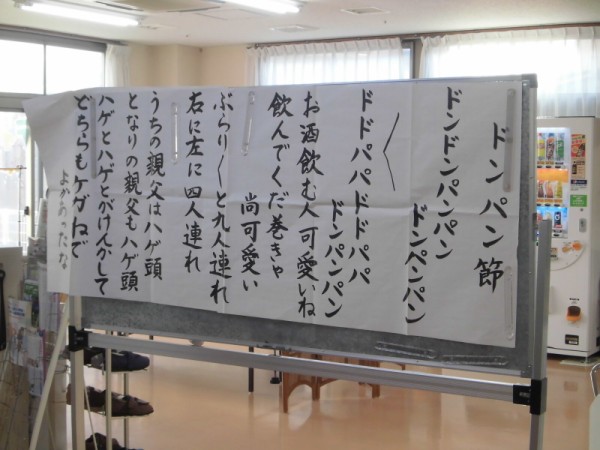 ドンパン節
ドンドンパンパン
ドンペンパン
ドドパパドドパパ
ドンパンパン
お酒飲む人可愛いね
飲んでくだ巻きゃ
尚可愛い
ぶらり〱と九人連れ
右に左に四人連れ
うちの親父はハゲ頭
となりの親父もハゲ頭
ハゲとハゲとがけんかして
どちらもケガねで
よがのったな